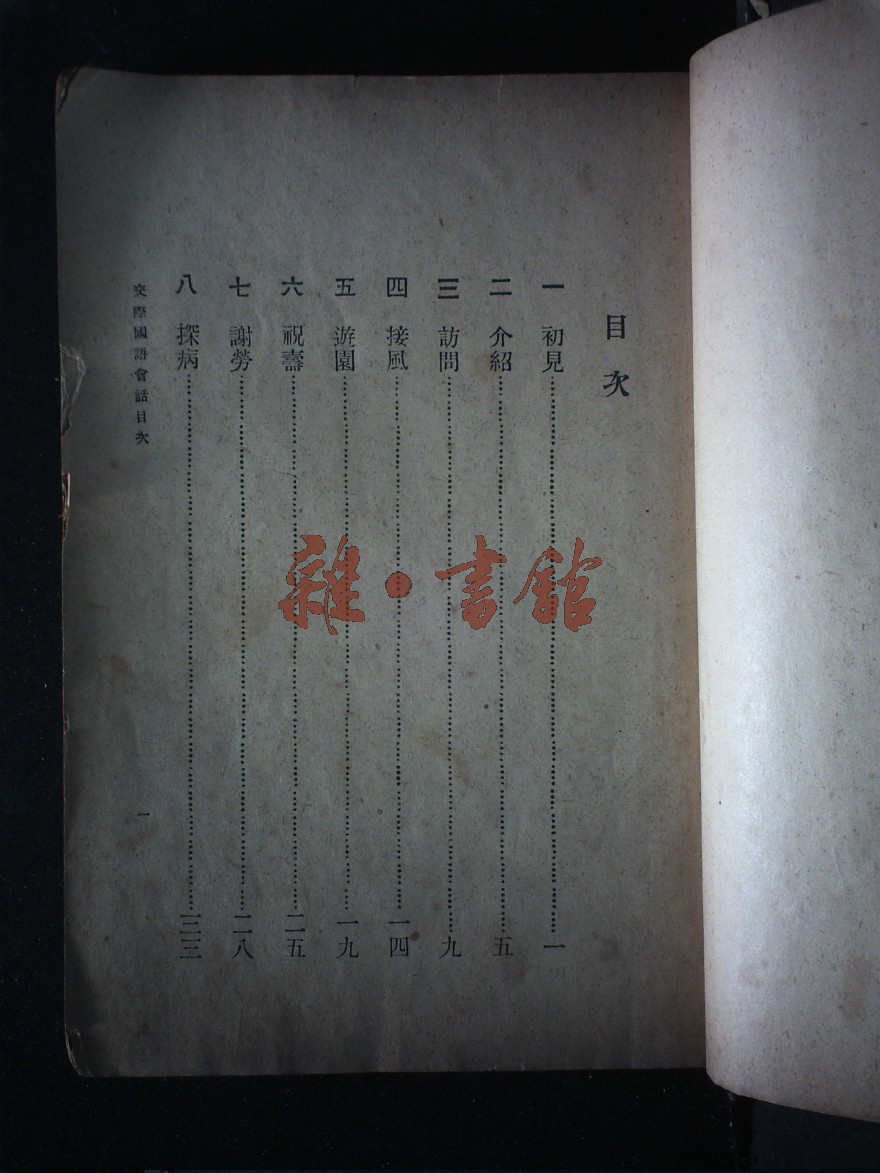 目次
一　初見……一
二　介紹……五
三　訪問……九
四　接風……一四
五　遊園……一九
六　祝壽……二五
七　謝勞……二八
八　探病……三三
交際國語會話目次
一
雜·書館